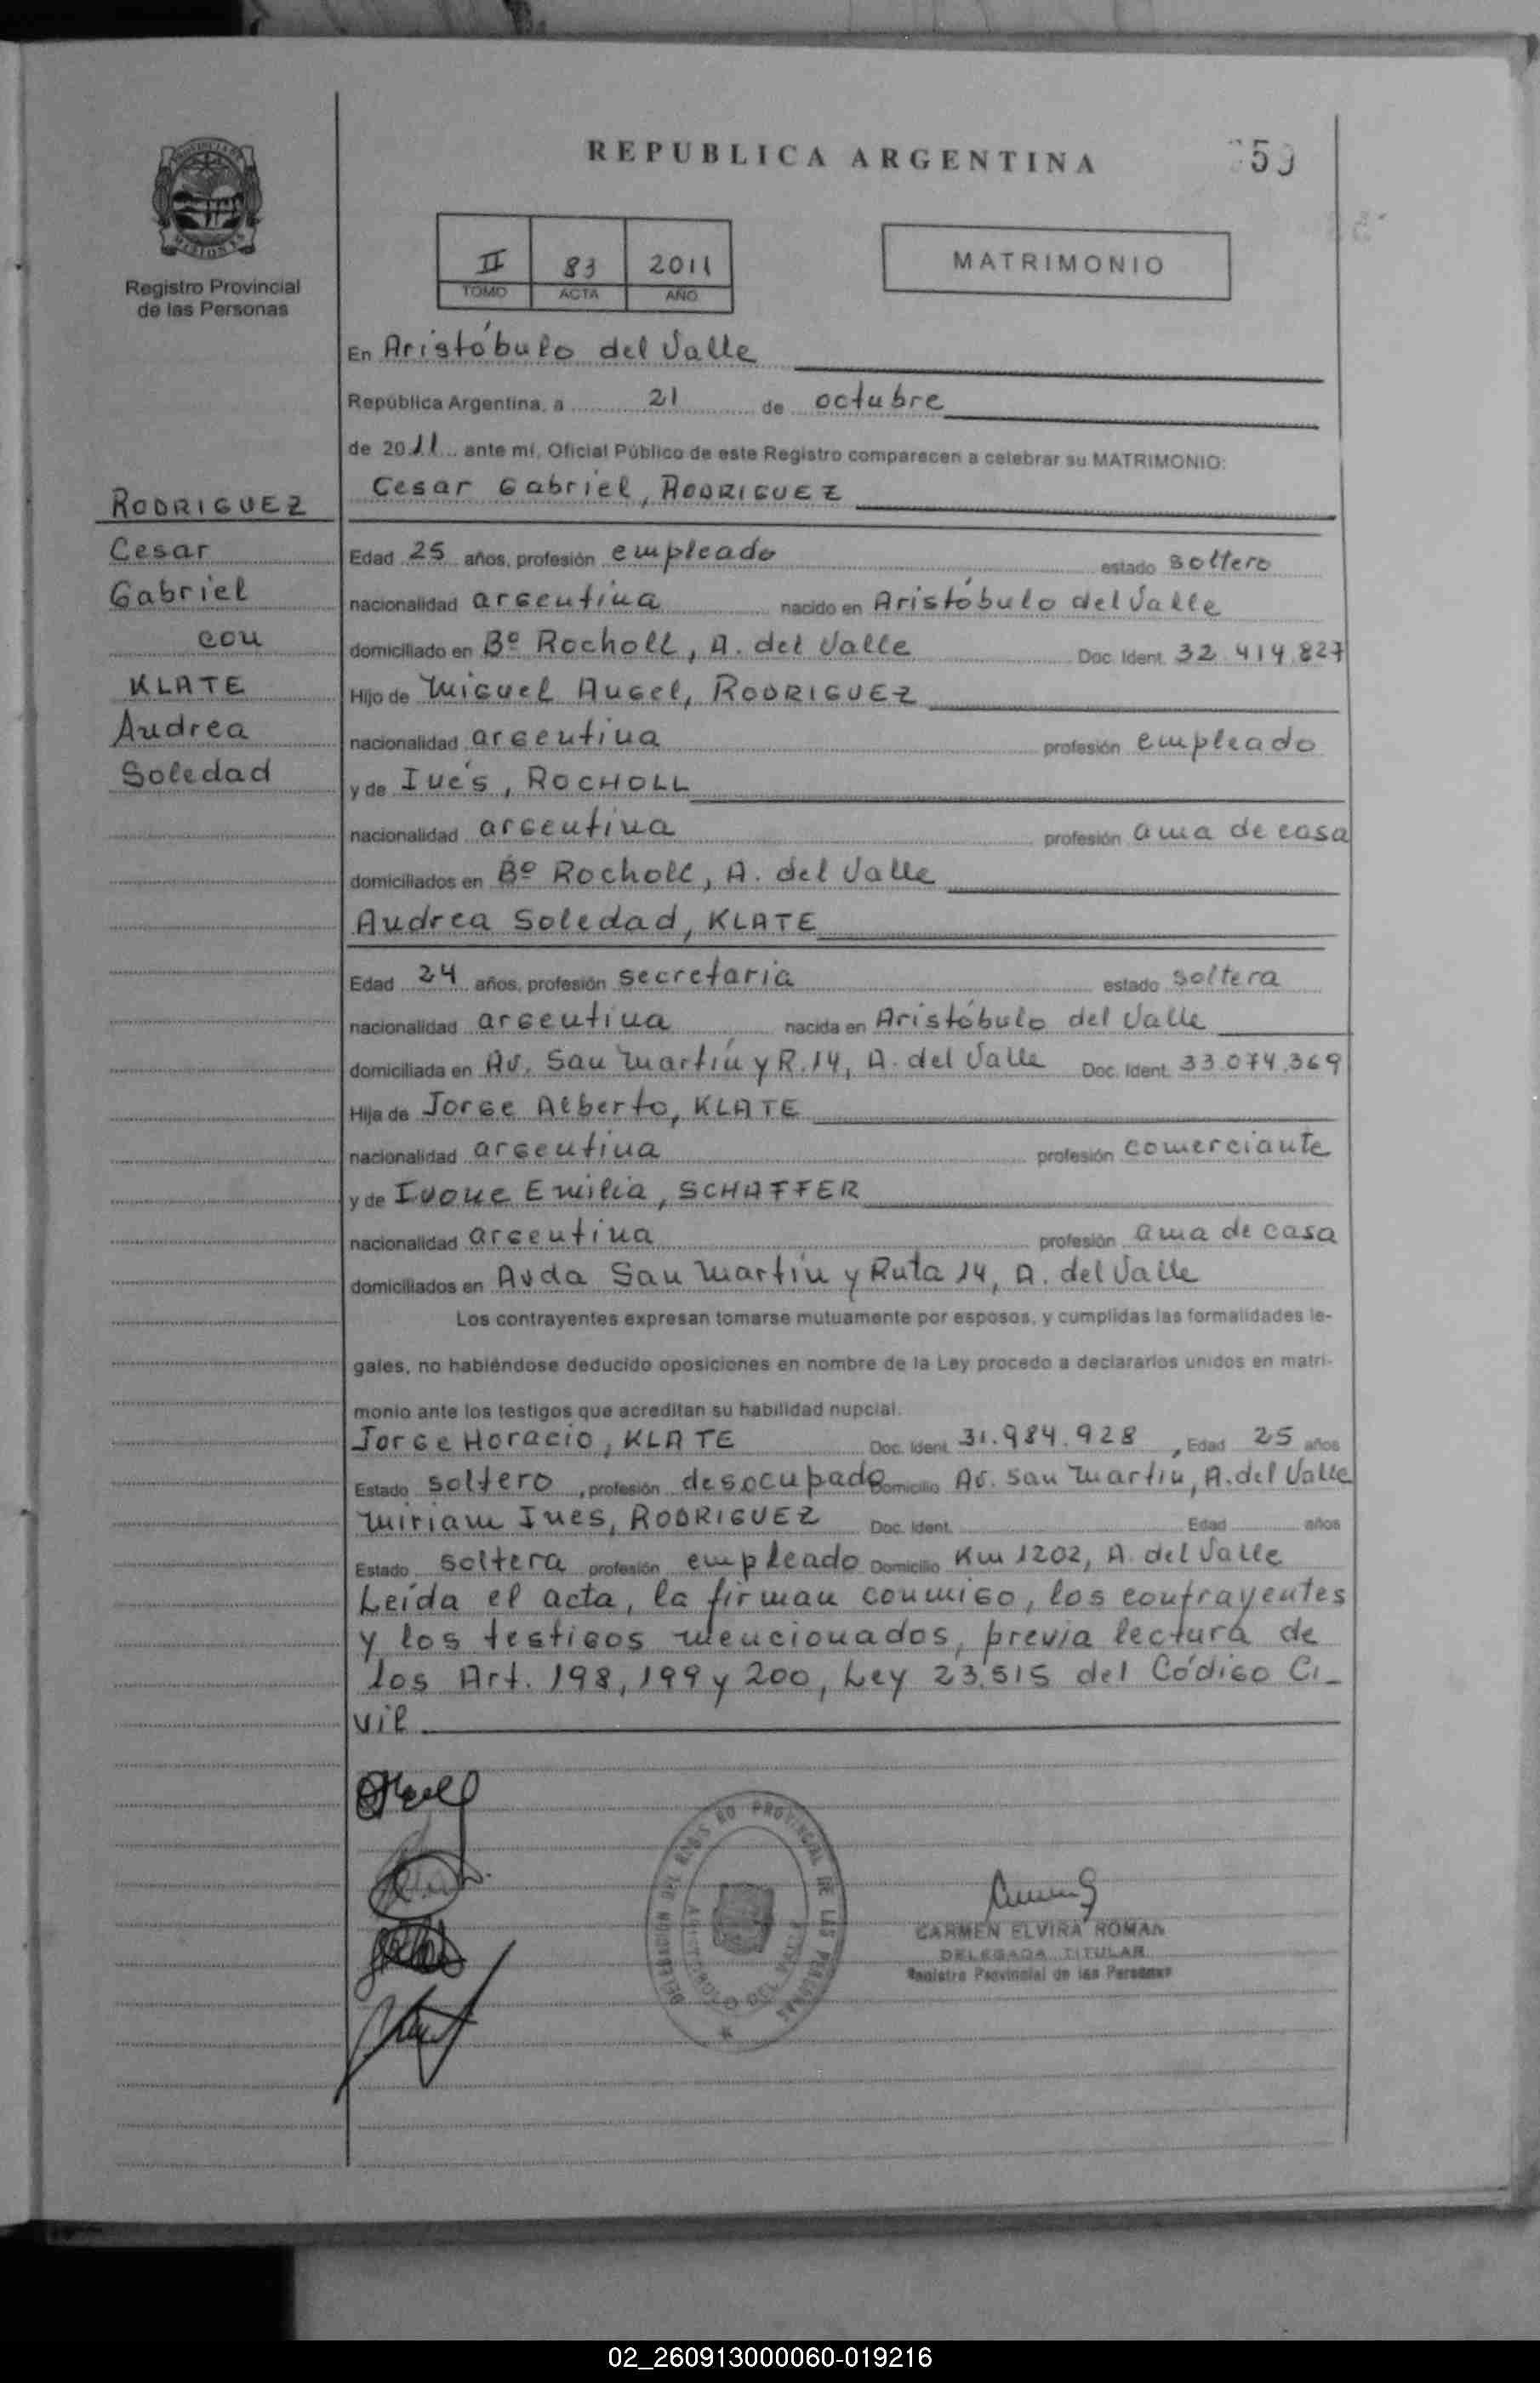 REPUBLICA ARGENTINA
PROVINCIA DE MISIONES
Registro Provincial
de las Personas
II 83 2011
TOMO ACTA AÑO
MATRIMONIO
En Aristóbulo del Valle
República Argentina, a 21 de octubre
de 2011 ante mí, Oficial Público de este Registro comparecen a celebrar su MATRIMONIO:
Cesar Gabriel, RODRIGUEZ
RODRIGUEZ
Cesar
Gabriel
con
KLATE
Andrea
Soledad
Edad 25 años, profesión empleado estado soltero
nacionalidad argentina nacido en Aristóbulo del Valle
domiciliado en Bº Rocholl, A. del Valle Doc. Ident. 32.414.827
Hijo de Miguel Angel, RODRIGUEZ
nacionalidad argentina profesión empleado
y de Inés, ROCHOLL
nacionalidad argentina profesión ama de casa
domiciliados en Bº Rocholl, A. del Valle
Andrea Soledad, KLATE
Edad 24 años, profesión secretaria estado soltera
nacionalidad argentina nacida en Aristóbulo del Valle
domiciliada en Av. San Martín y R.14, A. del Valle Doc. Ident. 33.074.369
Hija de Jorge Alberto, KLATE
nacionalidad argentina profesión comerciante
y de Ivone Emilia, SCHAFFER
nacionalidad argentina profesión ama de casa
domiciliados en Avda San Martín y Ruta 14, A. del Valle
Los contrayentes expresan tomarse mutuamente por esposos, y cumplidas las formalidades le-
gales, no habiéndose deducido oposiciones en nombre de la Ley procedo a declararlos unidos en matri-
monio ante los testigos que acreditan su habilidad nupcial.
Jorge Horacio, KLATE Doc. Ident. 31.984.928, Edad 25 años
Estado soltero, profesión desocupado Domicilio Av. San Martin, A. del Valle
Miriam Ines, RODRIGUEZ Doc. Ident. Edad años
Estado soltera profesión empleado Domicilio Km 1202, A. del Valle
Leída el acta, la firman conmigo, los contrayentes
y los testigos mencionados, previa lectura de
los Art. 198, 199 y 200, Ley 23.515 del Código Ci-
vil
DELEGACION DEL REGISTRO PROVINCIAL DE LAS PERSONAS
CARMEN ELVIRA ROMAN
DELEGADA TITULAR
Registro Provincial de las Personas
02_260913000060-019216